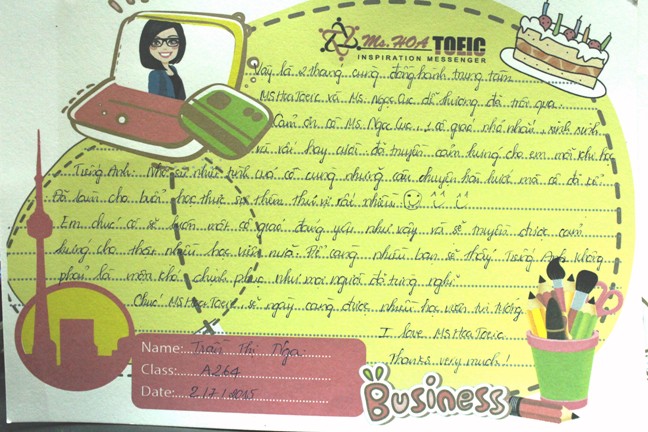 Ms. HOA TOEIC
INSPIRATION MESSENGER
Vậy là 2 tháng cùng đồng hành trung tâm
MS Hoa Toeic và Ms. Ngọc Cúc dễ thương đã trôi qua.
Cảm ơn cô Ms Ngọc Cúc, cô giáo nhỏ nhắn, xinh xinh
và rất hay cười đã truyền cảm hứng cho em mỗi khi học
Tiếng Anh. Nhờ sự nhiệt tình của cô cùng những câu chuyện hài hước mà cô đã kể
Đã làm cho buổi học thực sự thêm thú vị rất nhiều
Em chúc cô sẽ luôn một cô giáo đáng yêu như vậy và sẽ truyền được cảm
hứng cho thật nhiều học viên nữa. Để càng nhiều bạn sẽ thấy Tiếng Anh không
phải là môn khó chinh phục như mọi người đã từng nghĩ.
Chúc MS Hoa Toeic sẽ ngày càng được nhiều học viên tin tưởng.
I love MS Hoa Toeic
Thanks very much!
Name: Trần Thị Nga
Class: A264
Date: 2/7/2015
Business